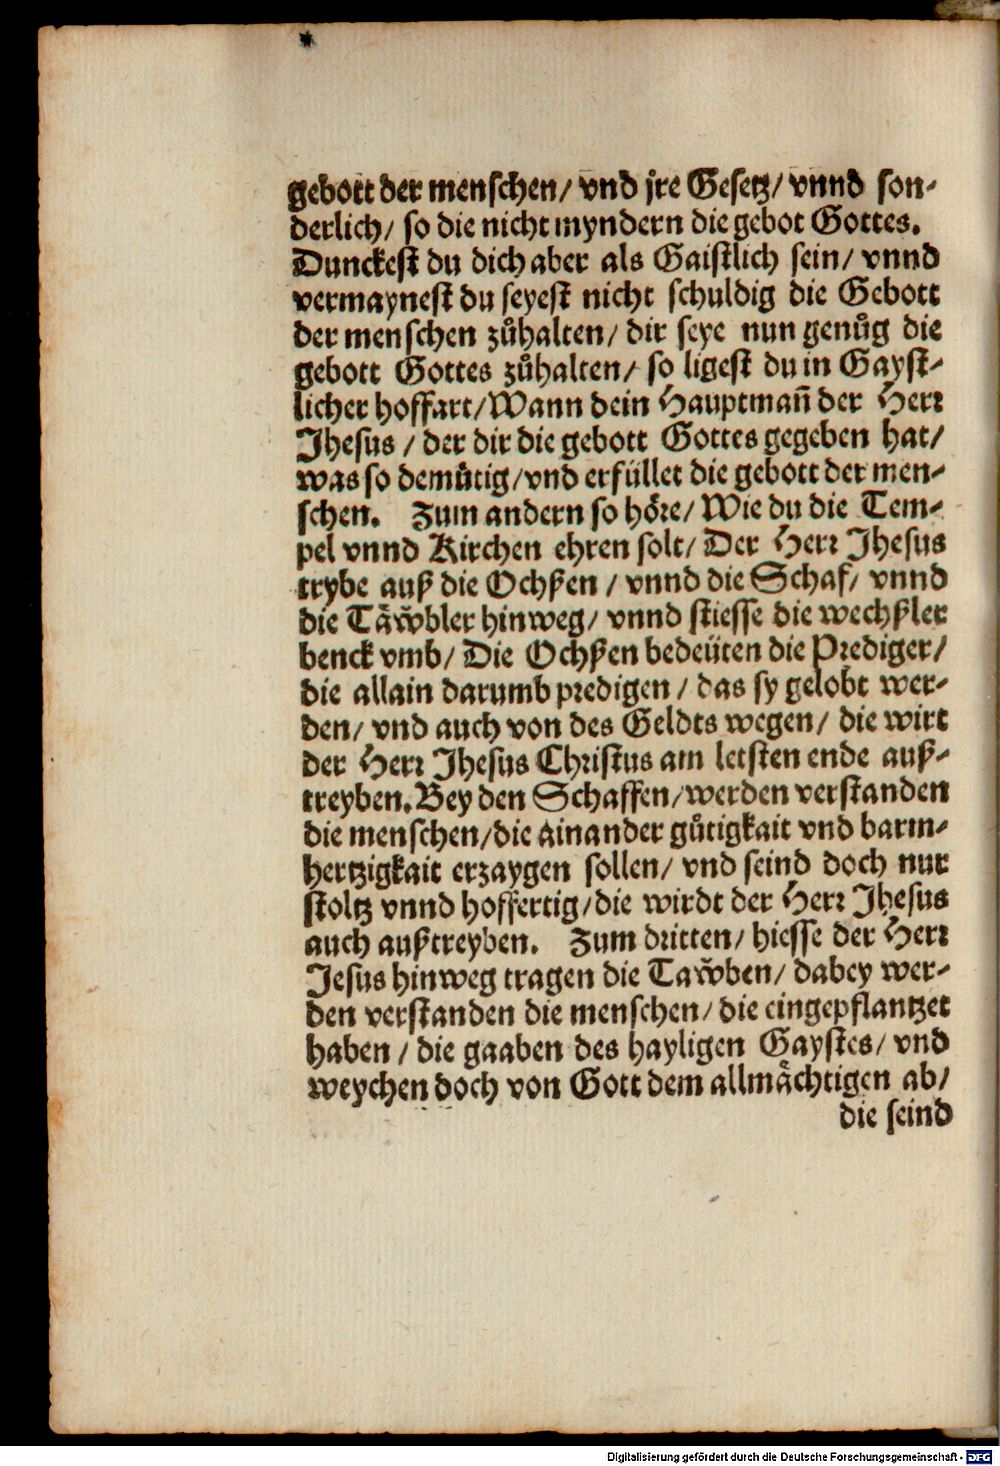 gebott der menschen/ vnd jre Gesetz/ vnnd son-
derlich/ so die nicht myndern die gebot Gottes.
Dunckest du dich aber als Gaistlich sein/ vnnd
vermaynest du seyest nicht schuldig die Gebott
der menschen zůhalten/ dir seye nun genůg die
gebott Gottes zůhalten/ so ligest du in Gayst-
licher hoffart/ Wann dein Hauptmañ der Herr
Jhesus / der dir die gebott Gottes gegeben hat/
was so demütig/ vnd erfüllet die gebott der men-
schen. Zum andern so höre/ Wie du die Tem-
pel vnnd Kirchen ehren solt/ Der Herr Jhesus
trybe auß die Ochßen / vnnd die Schaf/ vnnd
die Tåẘbler hinweg/ vnnd stiesse die wechßler
benck vmb/ Die Ochßen bedeüten die Prediger/
die allain darumb predigen / das sy gelobt wer-
den/ vnd auch von des Geldts wegen/ die wirt
der Herr Jhesus Christus am letsten ende auß-
treyben. Bey den Schaffen/ werden verstanden
die menschen/ die ainander gütigkait vnd barm-
hertzigkait erzaygen sollen/ vnd seind doch nur
stoltz vnnd hoffertig/ die wirdt der Herr Jhesus
auch außtreyben. Zum dritten/ hiesse der Herr
Jesus hinweg tragen die Taẘben/ dabey wer-
den verstanden die menschen/ die eingepflantzet
haben / die gaaben des hayligen Gaystes/ vnd
weychen doch von Gott dem allmächtigen ab/
die seind
Digitalisierung gefördert durch die Deutsche Forschungsgemeinschaft - DFG